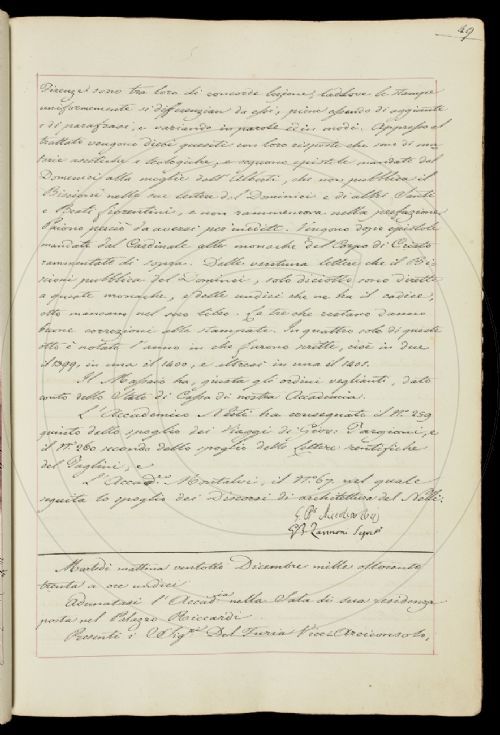 49
Firenze sono tra loro di concorde lezione; laddove le stampe
uniformemente si differenzian da essi, piene essendo di aggiunte
e di parafrasi, e variando in parole ed in modi. Appresso al
trattato vengono dieci quesiti con loro risposte che son di ma-
terie ascetiche e teologiche, e seguono epistole mandate dal
Domenici alla moglie dell'Alberti, che non pubblicò il
Biscioni nelle sue lettere del Dominici e di altri Santi
e Beati fiorentini, e non rammemora nella prefazione
Paiono perciò da aversi per inedite. Vengono dopo epistole
mandate dal Cardinale alle monache del Corpo di Cristo
rammentato di sopra. Delle ventuna lettere che il Bi-
scioni pubblicò del Dominici, solo diciotto sono dirette
a queste monache, e delle undici che ne ha il codice,
otto mancano nel suo libro. Le tre che restano danno
buone correzioni alle stampate. In quattro solo di queste
otto è notato l'anno in che furono scritte, cioè in due
il 1399, in una il 1400, e altresì in una il 1401.
Il Massaio ha, giusta gli ordini veglianti, dato
conto dello Stato di Cassa di nostra Accademia.
L'Accademico Nesti ha consegnato il N.º 259
quinto dello spoglio dei Viaggi di Giov: Targioni, e
il N.º 260 secondo dello spoglio delle Lettere pontifiche
del Paglini, e
L'Accad.co Montalvi, il N.º 67. nel quale
seguita lo spoglio dei Discorsi di architettura del Nelli.
G. B. Zannoni Segret.
Martedì mattina ventotto Dicembre mille ottocento
trenta a ore undici
Adunatasi l'Accad.ia nella Sala di sua residenza
posta nel Palazzo Riccardi
Presenti i SSig.ri Del Furia Vice-Arciconsolo,